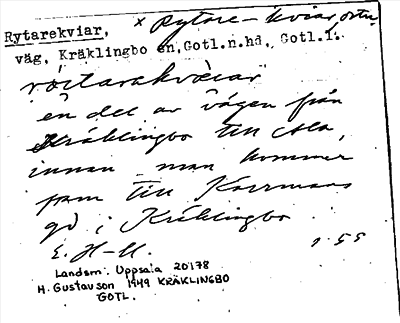 Rytarekviar, x Rytare-kviar,
väg, Kräklingbo sn, Gotl.n.hd., Gotl.l.
en del av vägen från
Kräklingbo till Ala,
innan man kommer
fram till Korrmans
gd i Kräklingbo
E. H-U.
Landsm. Uppsala 20178
H. Gustavson 1949 KRÄKLINGBO
GOTL.